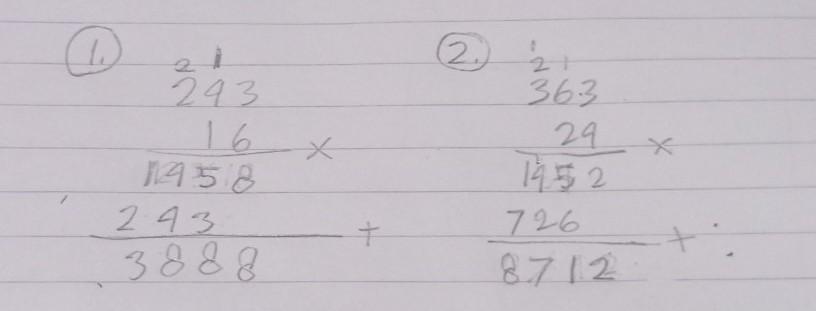 1.
2 1
243
16 ×
1458
243 +
3888
2.
1
2 1
363
24 ×
1452
726 +
8712